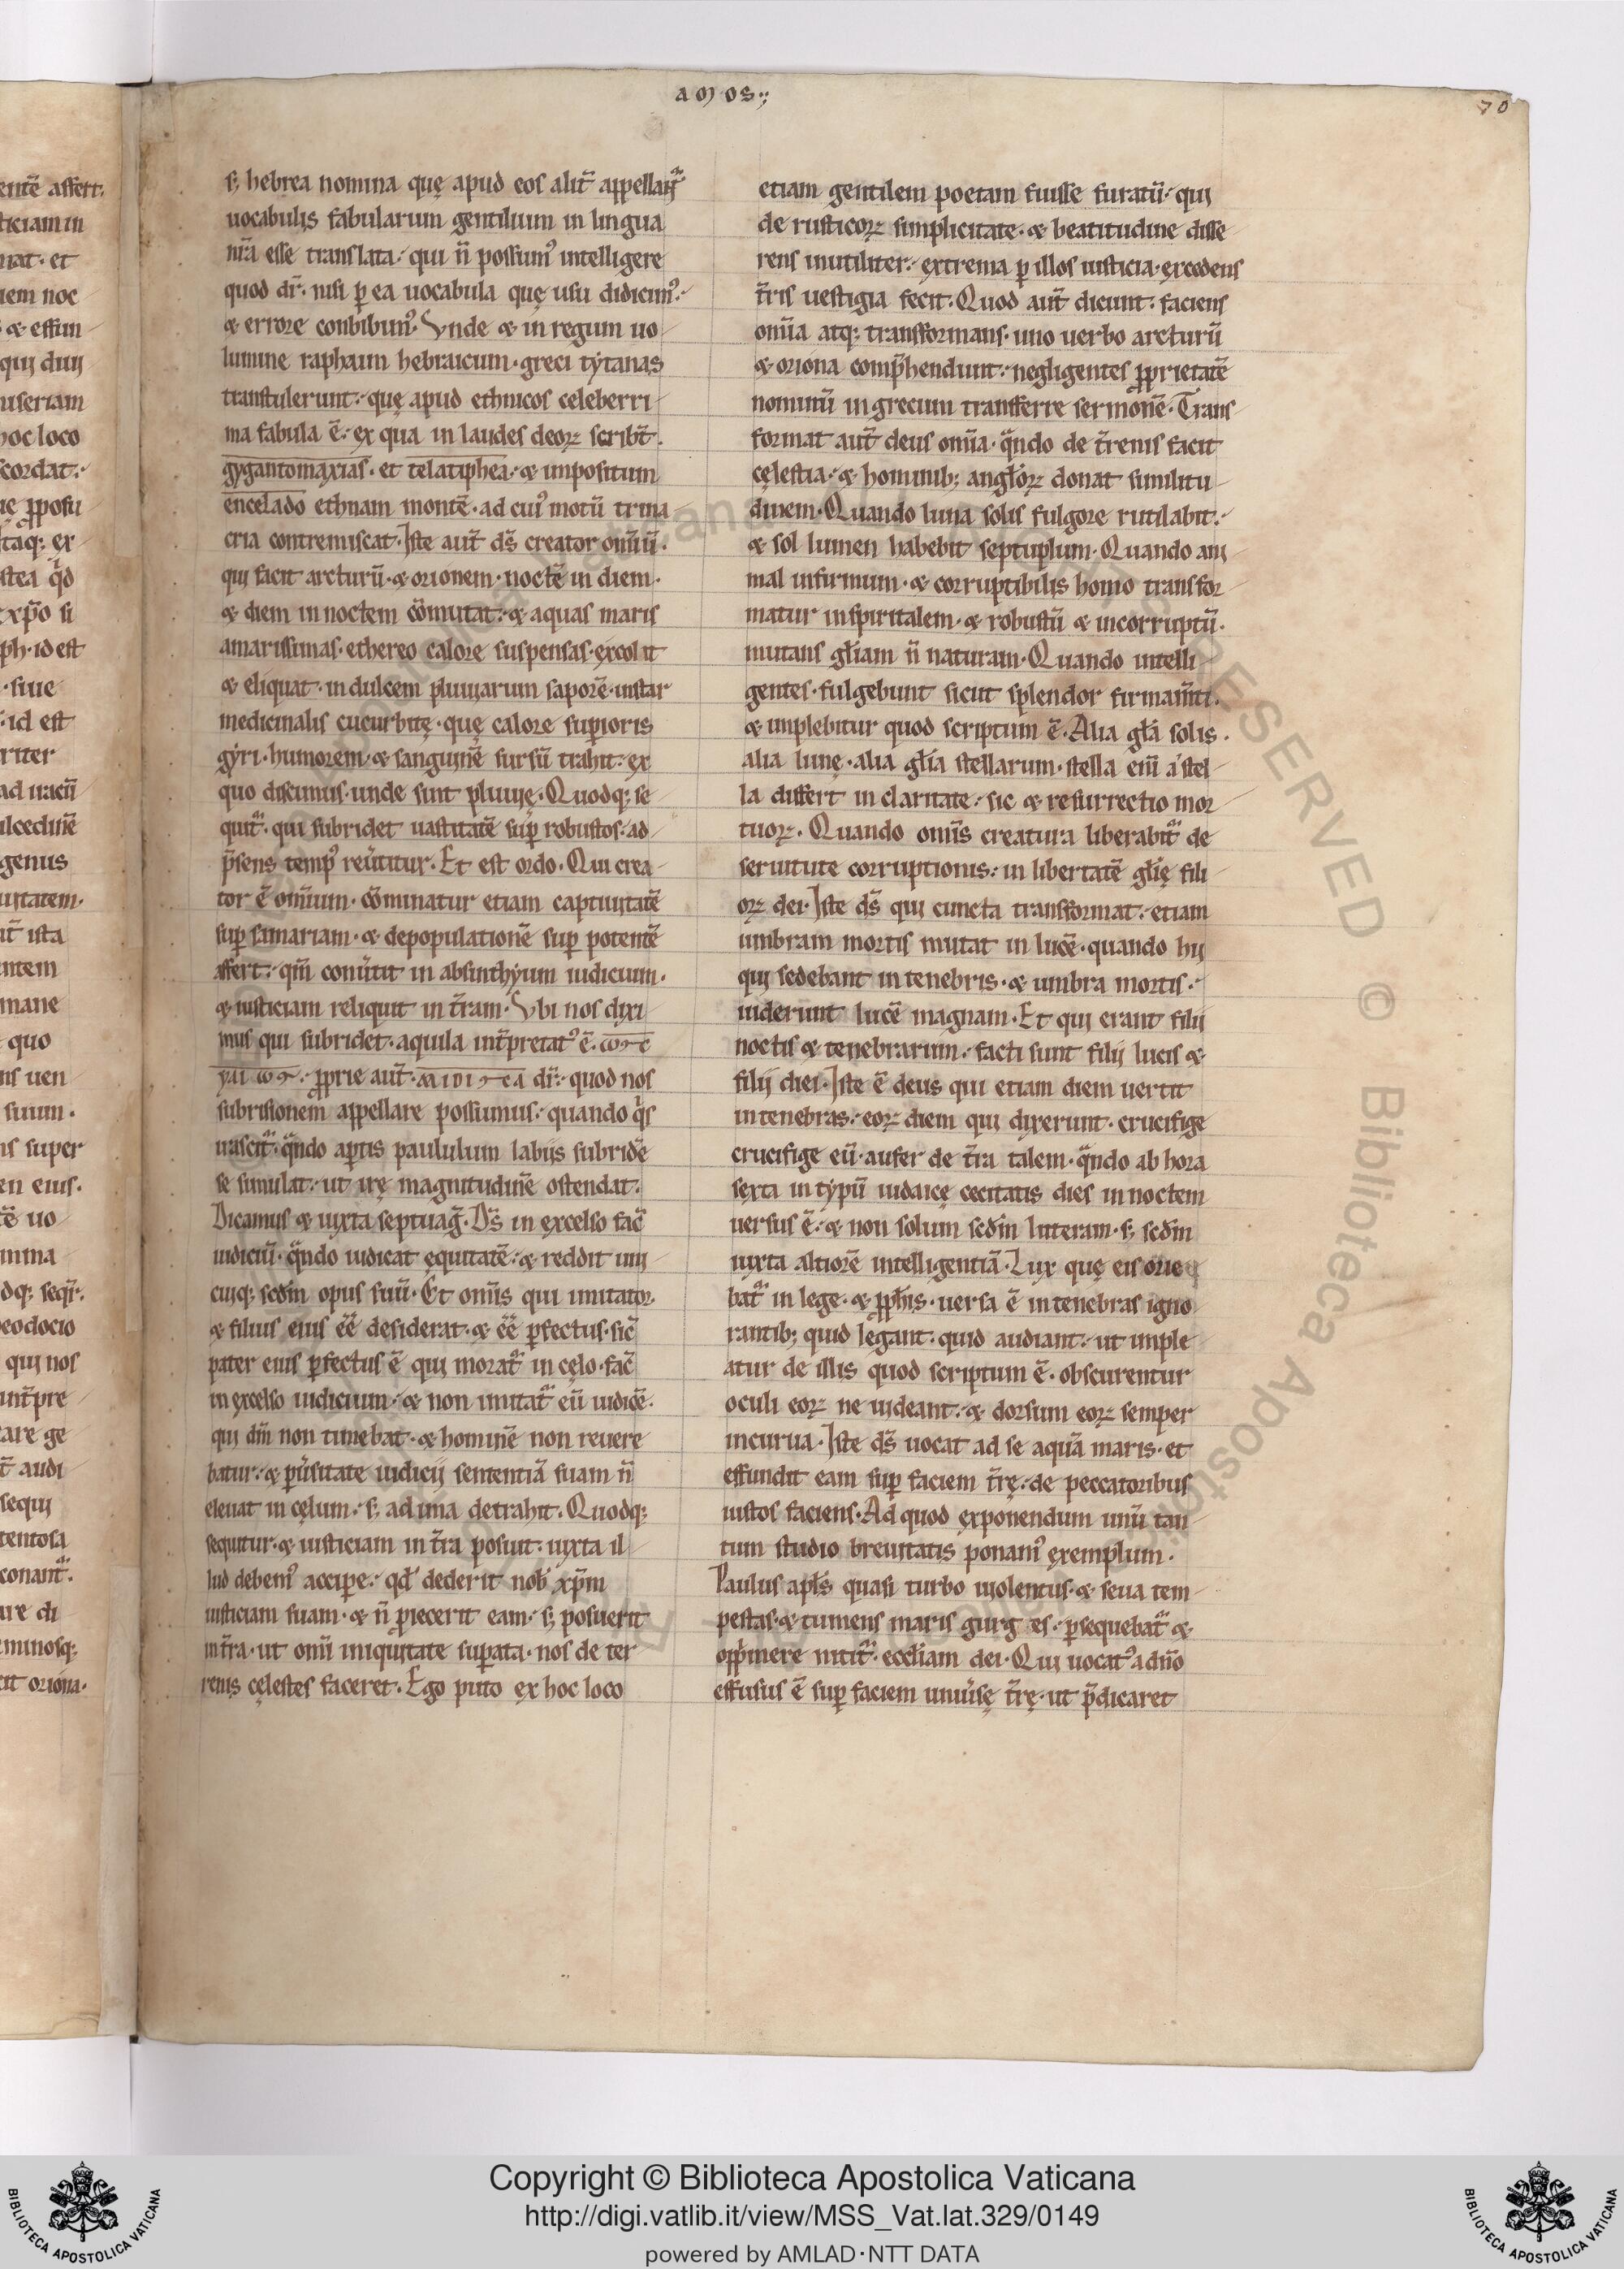 amos
70
s; hebrea nomina quę apud eos alit̄ appellant᷑
uocabulis fabularum gentilium in lingua
nr̄a esse translata. qui n̄ possum᷒ intelligere
quod dr̄. nisi ꝑ ea uocabula quę usu didicim᷒.
& errore conbibim᷒. Vnde & in regum uo
lumine raphaim hebraicum. greci tẏtanas
transtulerunt. quę apud ethnicos celeberri
ma fabula ē. ex qua in laudes deoꝝ scribt̄.
gygantomaxias. et telatiphea. & impositum
encelado ethnam montē. ad cui᷒ motū trina
cria contremiscat. Iste aut̄ ds̄ creator om̄iū.
qui facit arcturū. & orionem. noctē in diem.
& diem in noctem cōmutat. & aquas maris
amarissimas. ethereo calore suspensas. excolit
& eliquat. in dulcem pluuiarum saporē. instar
medicinalis cucurbitę. quę calore suꝑioris
gẏri. humorem. & sanguinē sursū trahit. ex
quo discimus. unde sint pluuię. Quodq; se
quit᷑. qui subridet uastitatē suꝑ robustos. ad
p̄sens temp᷒ reūtitur. Et est ordo. Qui crea
tor ē om̄ium. cōminatur etiam captiuitatē
suꝑ samariam. & depopulationē suꝑ potentē
affert. qm̄ conūtit in absinthẏum iudicium.
& iusticiam reliquit in t̄ram. Vbi nos dixi
mus qui subridet. aquila int̄pretat᷒ ē.
ꝓprie aut̄. dr̄. quod nos
subrisionem appellare possumus. quando q̄s
irascit᷑. q̄ndo aꝑtis paululum labiis subridē
se simulat. ut irę magnitudinē ostendat.
Dicamus & iuxta septuaḡ. Ds̄ in excelso fac̄
iudiciū. q̄ndo iudicat equitatē. & reddit uni
cuiq; scdm̄ opus suū. Et om̄is qui imitator
& filius eius eē̄ desiderat. & eē̄ ꝑfectus. sic̄
pater eius ꝑfectus ē qui morat᷑ in cęlo. fac̄
in excelso iudicium. & non imitat᷑ eū iudicē.
qui dm̄ non timebat. & hominē non reuere
batur. & ꝑūsitate iudicij sententiā suam n̄
eleuat in cęlum. s; ad ima detrahit. Quodq;
sequitur. & iusticiam in t̄ra posuit. iuxta il
lud debem᷒ acciꝑe. qđ dederit nob̄ xp̄m
iusticiam suam. & n̄ ꝓiecerit eam. s; posuerit
in t̄ra. ut om̄i iniquitate suꝑata. nos de ter
renis cęlestes faceret. Ego puto ex hoc loco
etiam gentilem poetam fuisse furatū. qui
de rusticoꝝ simplicitate. & beatitudine disse
rens inutiliter. extrema ꝑ illos iusticia. excedens
t̄ris uestigia fecit. Quod aut̄ dicunt. faciens
om̄ia atq; transformans. uno uerbo arcturū
& oriona comp̄hendunt. negligentes ꝓprietatē
nominū in grecum transferre sermonē. Trans
format aut̄ deus om̄ia. q̄ndo de t̄renis facit
cęlestia. & hominib; angl̄oꝝ donat similitu
dinem. Quando luna solis fulgore rutilabit.
& sol lumen habebit septuplum. Quando ani
mal infirmum. & corruptibilis homo transfor
matur in spiritalem. & robustū & incorruptū.
mutans gl̄iam n̄ naturam. Quando intelli
gentes. fulgebunt sicut splendor firmam̄ti.
& implebitur quod scriptum ē. Alia gl̄a solis.
alia lunę. alia gl̄ia stellarum. stella eim̄ a stel
la differt in claritate. sic & resurrectio mor
tuoꝝ. Quando om̄is creatura liberabit᷑ de
seruitute corruptionis. in libertatē gl̄ię fili
oꝝ dei. Iste ds̄ qui cuncta transformat. etiam
umbram mortis mutat in lucē. quando hij
qui sedebant in tenebris. & umbra mortis.
uiderunt lucē magnam. Et qui erant filij
noctis & tenebrarum. facti sunt filij lucis &
filij diei. Iste ē deus qui etiam diem uertit
in tenebras. eoꝝ diem qui dixerunt. crucifige
crucifige eū. aufer de t̄ra talem. q̄ndo ab hora
sexta in tẏpū iudaicę cecitatis dies in noctem
uersus ē. & non solum scdm̄ litteram. s; scdm̄
iuxta altiorē intelligentiā. Lux quę eis orie
bat᷑ in lege. & ꝓph̄is. uersa ē in tenebras igno
rantib; quid legant. quid audiant. ut imple
atur de illis quod scriptum ē. obscurentur
oculi eoꝝ ne uideant. & dorsum eoꝝ semper
incurua. Iste ds̄ uocat ad se aquā maris. et
effundit eam suꝑ faciem t̄rę. de peccatoribus
iustos faciens. Ad quod exponendum unū tan
tum studio breuitatis ponam᷒ exemplum.
Paulus apl̄s quasi turbo uiolentus. & seua tem
pestas. & tumens maris gurg es. ꝑsequebat᷑ &
opp̄mere nitit᷑. eccl̄iam dei. Qui uocat᷒ a dn̄o
effusus ē suꝑ faciem uniūsę t̄rę. ut p̄dicaret
Copyright © Biblioteca Apostolica Vaticana
http://digi.vatlib.it/view/MSS_Vat.lat.329/0149
powered by AMLAD·NTT DATA
BIBLIOTECA APOSTOLICA VATICANA
BIBLIOTECA APOSTOLICA VATICANA